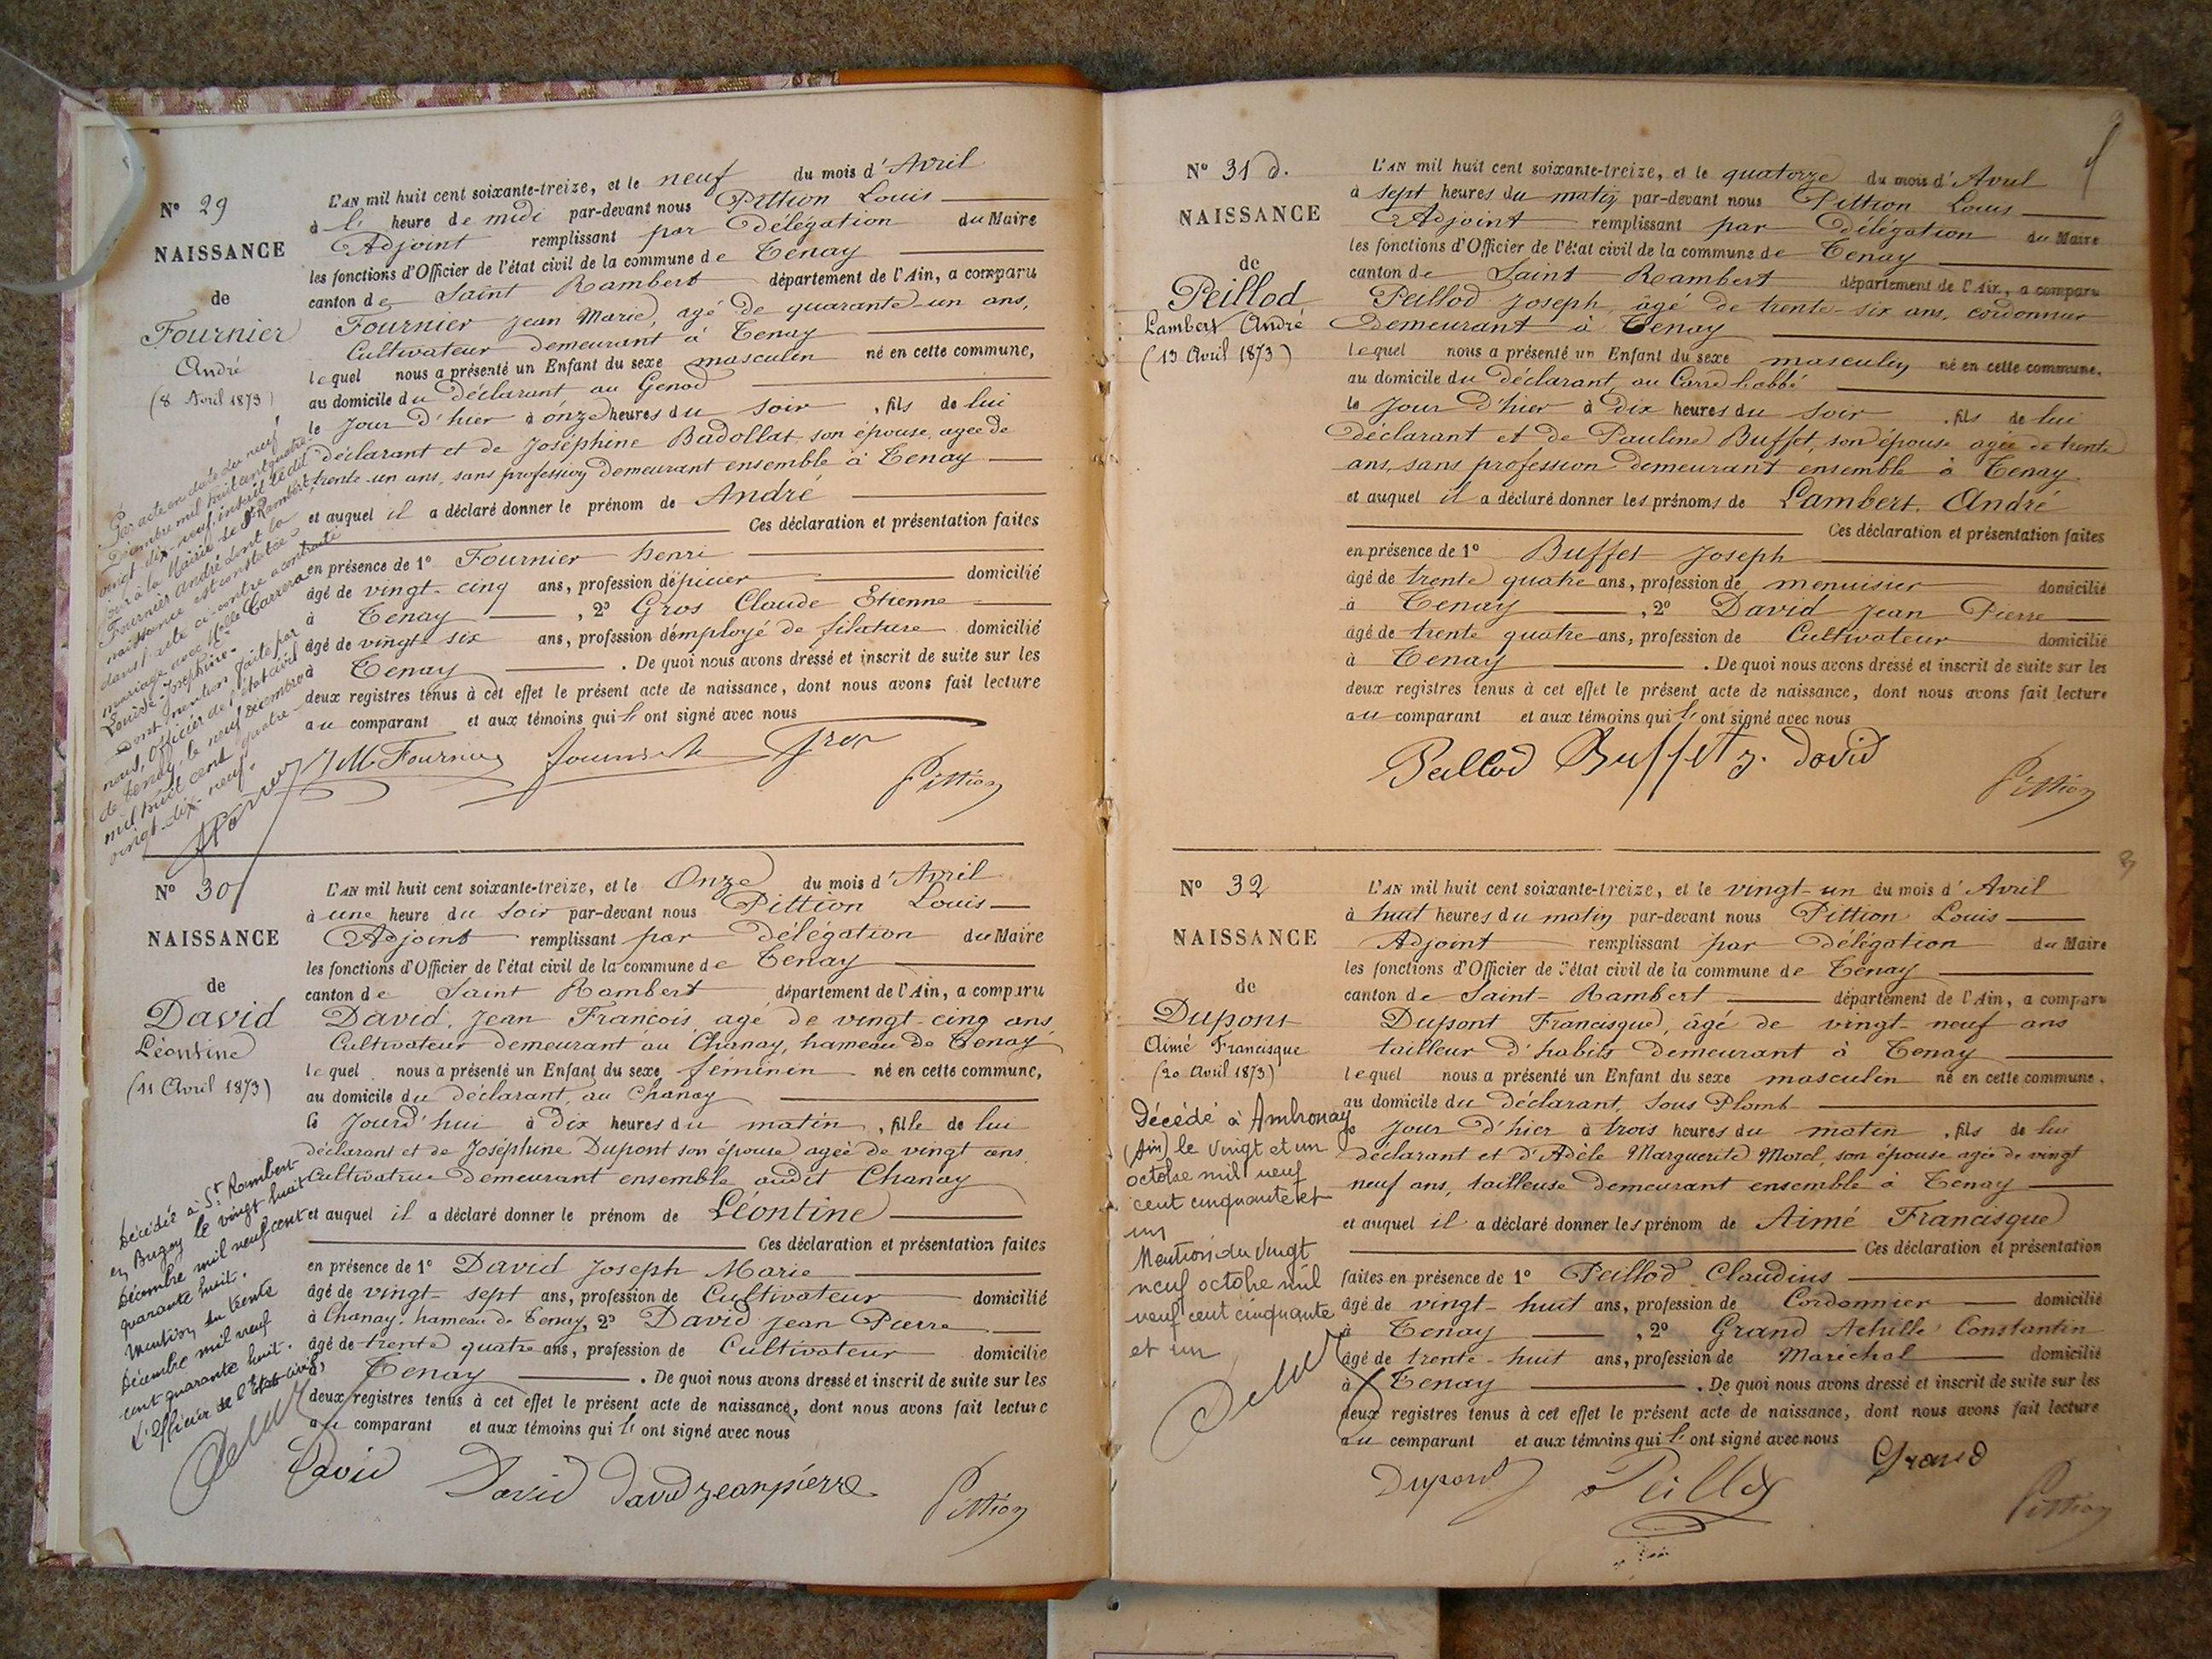 Nº 29
NAISSANCE
de
Fournier
André
(8 Avril 1873)
Par acte en date du neuf
Décembre mil huit cent quatre
vingt dix-neuf, inscrit ledit
jour à la Mairie de St Rambert,
Fournier André dont la
naissance est constatée
dans l'acte ci-contre a contracté
mariage avec Melle Carrera
Louise Josephine.
Dont mention faite par
nous, Officier de l'état civil
de Tenay, le neuf Décembre
mil huit cent quatre-
vingt-dix-neuf.
L'AN mil huit cent soixante-treize, et le neuf du mois d'Avril
à l' heure de midi par-devant nous Pittion Louis
Adjoint remplissant par Délégation du Maire
les fonctions d'Officier de l'état civil de la commune de Tenay
canton de Saint Rambert département de l'Ain, a comparu
Fournier Jean Marie, agé de quarante-un ans,
Cultivateur demeurant à Tenay
lequel nous a présenté un Enfant du sexe masculin né en cette commune,
au domicile du déclarant au Genod
le jour d'hier à onze heures du soir, fils de lui
déclarant et de Joséphine Badollat, son épouse, agée de
trente-un ans, sans profession demeurant ensemble à Tenay
et auquel il a déclaré donner le prénom de André
Ces déclaration et présentation faites
en présence de 1º Fournier henri
âgé de vingt-cinq ans, profession d'épicier domicilié
à Tenay, 2º Gros Claude Etienne
âgé de vingt-six ans, profession d'employé de filature domicilié
à Tenay. De quoi nous avons dressé et inscrit de suite sur les
deux registres tenus à cet effet le présent acte de naissance, dont nous avons fait lecture
au comparant et aux témoins qui l' ont signé avec nous
JM Fournier Gros
Pittion
Nº 30
NAISSANCE
de
David
Léontine
(11 Avril 1873)
Décédée à St Rambert
en Bugey le vingt huit
Décembre mil neuf cent
quarante huit.
Mention du trente
Décembre mil neuf
cent quarante huit.
L'Officier de l'Etat civil,
L'AN mil huit cent soixante-treize, et le Onze du mois d'Avril
à une heure du soir par-devant nous Pittion Louis
Adjoint remplissant par Délégation du Maire
les fonctions d'Officier de l'état civil de la commune de Tenay
canton de Saint Rambert département de l'Ain, a comparu
David, Jean François agé de vingt-cinq ans
Cultivateur demeurant au Chanay, hameau de Tenay
lequel nous a présenté un Enfant du sexe féminin né en cette commune,
au domicile du déclarant, au Chanay
le jourd'hui à dix heures du matin, fille de lui
déclarant et de Joséphine Dupont son épouse agée de vingt ans
Cultivatrice demeurant ensemble audit Chanay
et auquel il a déclaré donner le prénom de Léontine
Ces déclaration et présentation faites
en présence de 1º David Joseph Marie
âgé de vingt-sept ans, profession de Cultivateur domicilié
à Chanay, hameau de Tenay, 2º David Jean Pierre
âgé de trente quatre ans, profession de Cultivateur domicilié
à Tenay. De quoi nous avons dressé et inscrit de suite sur les
deux registres tenus à cet effet le présent acte de naissance, dont nous avons fait lecture
au comparant et aux témoins qui l' ont signé avec nous
David David David jean pierre
Pittion
Nº 31 d.
NAISSANCE
de
Peillod
Lambert André
(13 Avril 1873)
L'AN mil huit cent soixante-treize, et le quatorze du mois d'Avril
à sept heures du matin par-devant nous Pittion Louis
Adjoint remplissant par Délégation du Maire
les fonctions d'Officier de l'état civil de la commune de Tenay
canton de Saint Rambert département de l'Ain, a comparu
Peillod Joseph, âgé de trente-six ans, cordonnier
demeurant à Tenay
lequel nous a présenté un Enfant du sexe masculin né en cette commune,
au domicile du déclarant, au Carré l'abbé
le jour d'hier à dix heures du soir, fils de lui
déclarant et de Pauline Buffet, son épouse agée de trente
ans, sans profession demeurant ensemble à Tenay
et auquel il a déclaré donner les prénoms de Lambert André
Ces déclaration et présentation faites
en présence de 1º Buffet Joseph
âgé de trente quatre ans, profession de menuisier domicilié
à Tenay, 2º David Jean Pierre
âgé de trente quatre ans, profession de Cultivateur domicilié
à Tenay. De quoi nous avons dressé et inscrit de suite sur les
deux registres tenus à cet effet le présent acte de naissance, dont nous avons fait lecture
au comparant et aux témoins qui l' ont signé avec nous
Peillod Buffet J. David
Pittion
Nº 32
NAISSANCE
de
Dupont
Aimé Francisque
(20 Avril 1873)
Décédé à Ambronay
(Ain) le vingt et un
octobre mil neuf
cent cinquante et
un
Mention du vingt
neuf octobre mil
neuf cent cinquante
et un
L'AN mil huit cent soixante-treize, et le vingt-un du mois d'Avril
à huit heures du matin par-devant nous Pittion Louis
Adjoint remplissant par délégation du Maire
les fonctions d'Officier de l'état civil de la commune de Tenay
canton de Saint-Rambert département de l'Ain, a comparu
Dupont Francisque, âgé de vingt-neuf ans
tailleur d'habits demeurant à Tenay
lequel nous a présenté un Enfant du sexe masculin né en cette commune,
au domicile du déclarant, Sous Plomb
le jour d'hier à trois heures du matin, fils de lui
déclarant et d'Adèle Marguerite Morel, son épouse agée de vingt
neuf ans, tailleuse demeurant ensemble à Tenay
et auquel il a déclaré donner les prénom de Aimé Francisque
Ces déclaration et présentation
faites en présence de 1º Peillod Claudius
âgé de vingt-huit ans, profession de Cordonnier domicilié
à Tenay, 2º Grand Achille Constantin
âgé de trente-huit ans, profession de Maréchal domicilié
à Tenay. De quoi nous avons dressé et inscrit de suite sur les
deux registres tenus à cet effet le présent acte de naissance, dont nous avons fait lecture
au comparant et aux témoins qui l' ont signé avec nous
Dupont Peillod Grand
Pittion